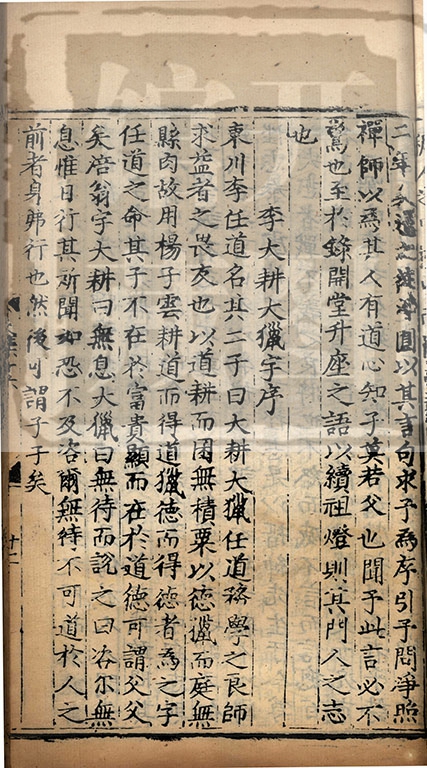 以其言句求予爲序引予問淨照
禪師以爲其人有道心知子莫若父也聞予此言必不
驚也至於錄開堂升座之語以續祖燈則其門人之志
也
李大耕大獵字序
東川李任道名其二子曰大耕大獵任道務學之良師
求益者之畏友也以道耕而囷無積粟以德獵而庭無
縣肉故用楊子雲耕道而得道獵德而得德者爲之字
任道之命其子不在於富貴顯而在於道德可謂父父
矣涪翁字大耕曰無息大獵曰無待而說之曰咨尔無
息惟日行其所聞如恐不及咨爾無待不可道於人之
前者身弗行也然後可謂子子矣
十二